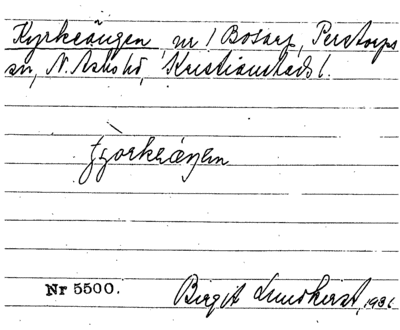 Kyrkeängen, nr 1 Bosarp, Perstorps
sn, N. Åsbo hd, Kristianstads l.
Nr 5500. Birgit Lundkvist, 1936